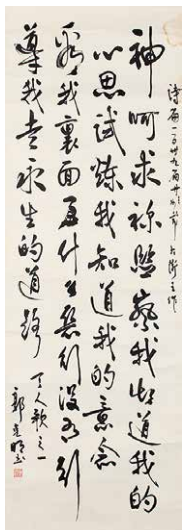 詩篇一百卅九篇廿三節 大衛之作
神呵求祢鑒察我知道我的
心思試煉我知道我的意念
看我裏面有什么惡行沒有引
導我走永生的道路
天人歌之一
郭